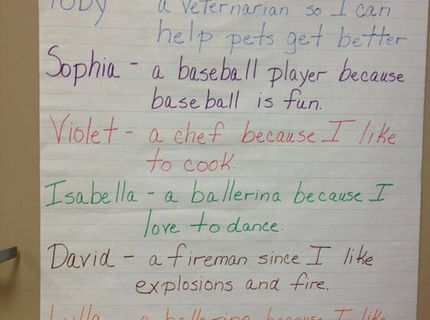 Toby a veternarian so I can
help pets get better
Sophia - a baseball player because
baseball is fun.
Violet - a chef because I like
to cook.
Isabella - a ballerina because I
love to dance.
David - a fireman since I like
explosions and fire.
a ballerina because I like